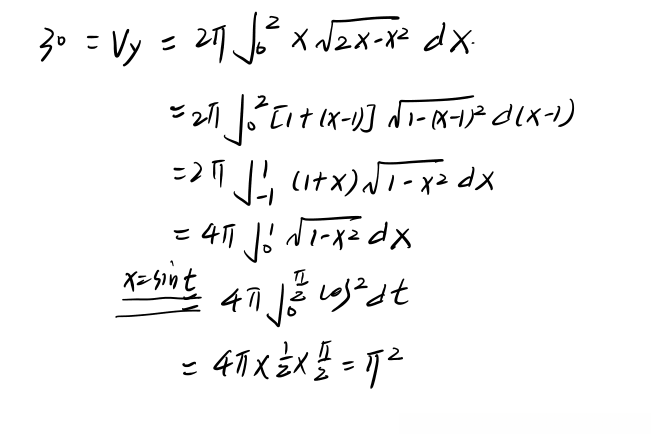 3° = Vy = 2π ∫₀² x √(2x-x²) dx.
= 2π ∫₀² [1+(x-1)] √(1-(x-1)²) d(x-1)
= 2π ∫₋₁¹ (1+x) √(1-x²) dx
= 4π ∫₀¹ √(1-x²) dx
x=sint
= 4π ∫₀^(π/2) cos² dt
= 4π × 1/2 × π/2 = π²